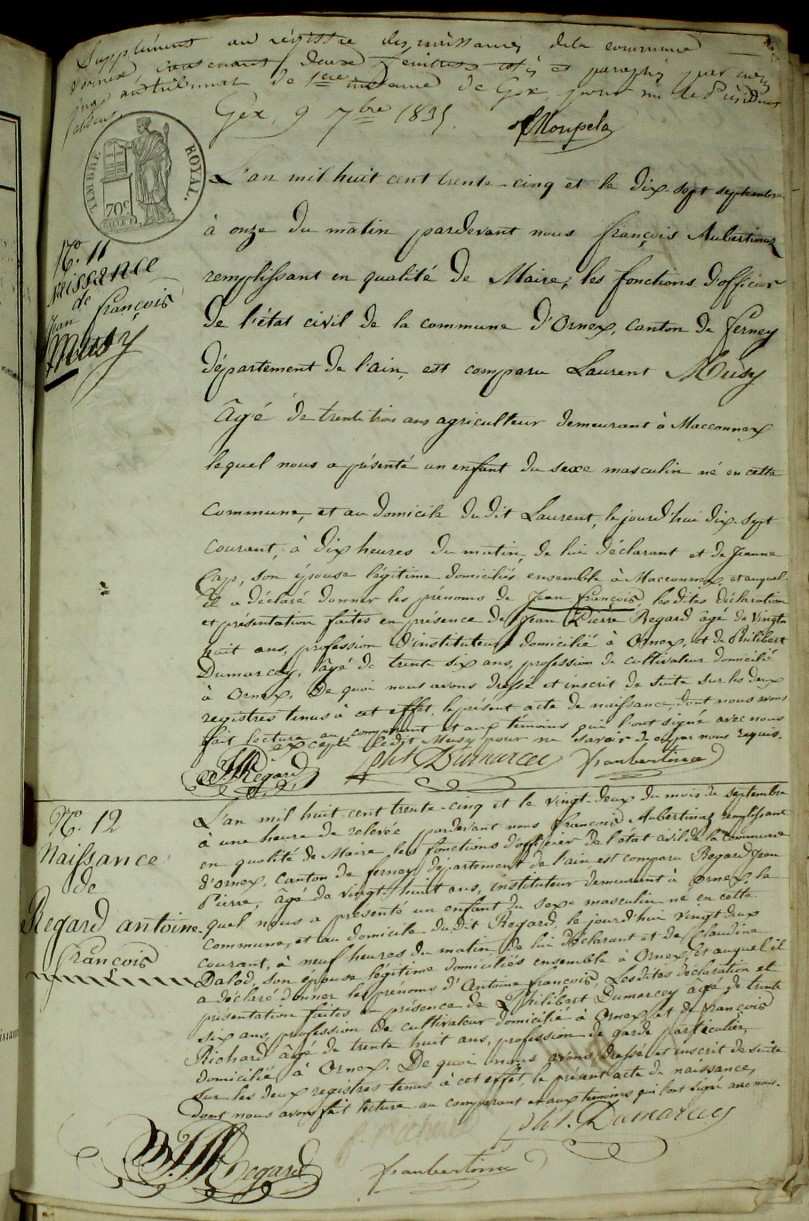 Supplément au registre des naissances de la commune
d'ornex contenant deux feuillets et paraphé par nous
juge au tribunal de 1ere instance de Gex pour Mr le Président
Gex, 9 7bre 1835.
TIMBRE ROYAL
70c
No. 11
naissance
de
Jean françois
Musy
L'an mil huit cent trente-cinq et le dix-sept septembre
à onze du matin pardevant nous françois Aubertin
remplissant en qualité de Maire, les fonctions d'officier
de l'état civil de la commune d'Ornex, canton de ferney
département de l'ain, est comparu Laurent Musy
âgé de trente trois ans agriculteur demeurant à Macconnex
lequel nous a présenté un enfant du sexe masculin né en cette
commune, et au domicile du dit Laurent, le jourd'hui dix-sept
courant, à dix heures du matin, de lui déclarant et de Jeanne
son épouse légitime domiciliés ensemble à Macconnex, et auquel
il a déclaré donner les prénoms de Jean françois, les dites déclaration
et présentation faites en présence de Jean Pierre Regard âgé de vingt
huit ans, profession d'instituteur domicilié à Ornex, et de Philibert
Dumarcey, âgé de trente six ans, profession de cultivateur domicilié
à Ornex. De quoi nous avons dressé et inscrit de suite sur les deux
registres tenus à cet effet, le présent acte de naissance, dont nous avons
fait lecture au comparant et aux témoins qui l'ont signé avec nous
excepté ledit Musy pour ne savoir de ce par nous requis.
JP Regard Phi. Dumarcey f. aubertin
No. 12
Naissance
de
Regard antoine
françois
L'an mil huit cent trente-cinq et le vingt-deux du mois de septembre
à une heure de relevée pardevant nous francois Aubertin remplissant
en qualité de Maire, les fonctions d'officier de l'état civil de la commune
d'ornex, canton de ferney département de l'ain est comparu Regard Jean
Pierre, âgé de vingt huit ans, instituteur demeurant à Ornex, le
quel nous a présenté un enfant du sexe masculin né en cette
commune, et au domicile du dit Regard, le jourd'hui vingt deux
courant, à neuf heures du matin de lui déclarant et de Claudine
Dalod, son épouse légitime domiciliés ensemble à Ornex, et auquel il
a déclaré donner les prénoms d'Antoine françois, Les dites déclaration et
présentation faites en présence de Philibert Dumarcey âgé de trente
six ans, profession de cultivateur domicilié à Ornex et de françois
Richard âgé de trente huit ans, profession de garde particulier,
domicilié à Ornex. De quoi nous avons dressé et inscrit de suite
sur les deux registres tenus à cet effet le présent acte de naissance,
dont nous avons fait lecture au comparant et aux temoins qui l'ont signé avec nous.
Phi. Dumarcey
JP Regard f. aubertin